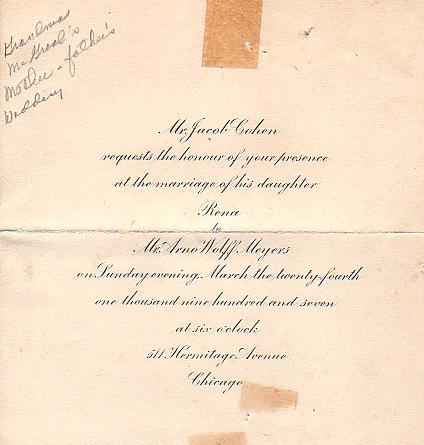 Grandma
McGreal's
Mother - father's
Wedding
Mr. Jacob Cohen
requests the honour of your presence
at the marriage of his daughter
Rena
to
Mr. Arno Wolff Meyers
on Sunday evening, March the twenty-fourth
one thousand nine hundred and seven
at six o'clock
511 Hermitage Avenue
Chicago